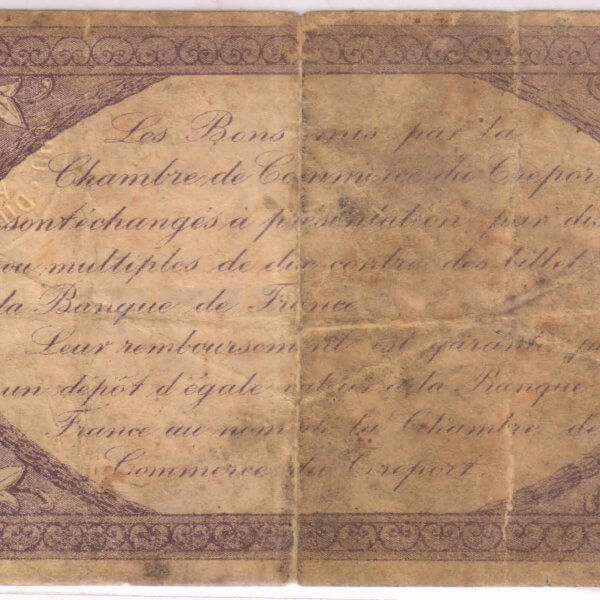 Les Bons émis par la
Chambre de Commerce du Trepor
sont échangés à présentation par dix
ou multiples de dix contre des billet
la Banque de France
Leur remboursement est garanti pa
un dépôt d'égale valeur à la Banque
France au nom de la Chambre de
Commerce du Treport